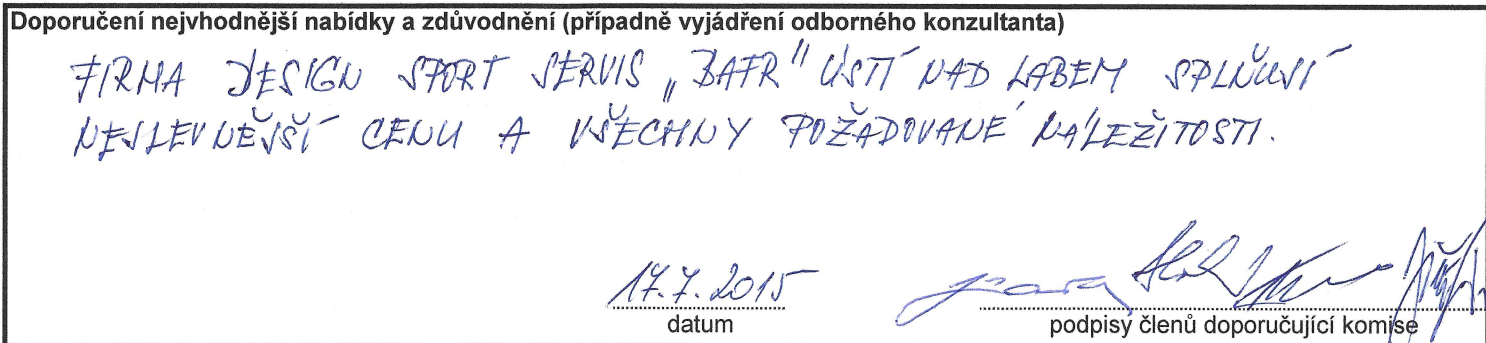 Doporučení nejvhodnější nabídky a zdůvodnění (případně vyjádření odborného konzultanta)
FIRMA DESIGN SPORT SERVIS „BAFR" ÚSTÍ NAD LABEM SPLŇUJÍ
NEJLEVNĚJŠÍ CENU A VŠECHNY POŽADOVANÉ NÁLEŽITOSTI.
17.7.2015
datum
podpisy členů doporučující komise